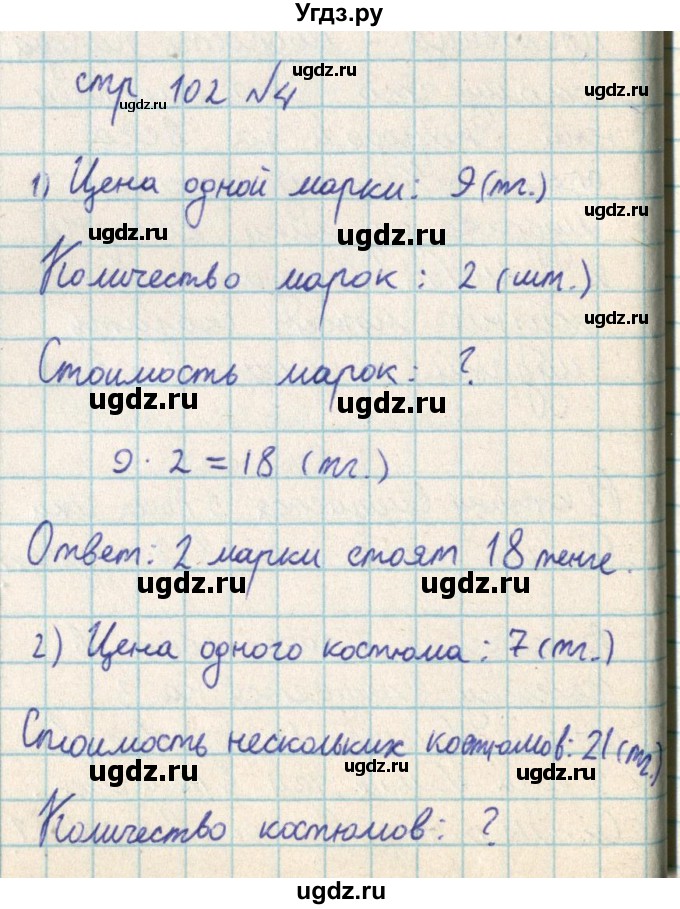 Угдз.ру
стр 102 №4
ugdz.ru
ugdz.ru
ugdz.ru
1) Цена одной марки: 9 (тг.)
ugdz.ru
ugdz.ru
ugdz.ru
Количество марок: 2 (шт.)
ugdz.ru
Стоимость марок: ?
ugdz.ru
ugdz.ru
9 · 2 = 18 (тг.)
Ответ: 2 марки стоят 18 тенге.
ugdz.ru
ugdz.ru
2) Цена одного костюма: 7 (тг.)
Стоимость нескольких костюмов: 21 (тг.)
ugdz.ru
ugdz.ru
ugdz.ru
Количество костюмов: ?
ugdz.ru